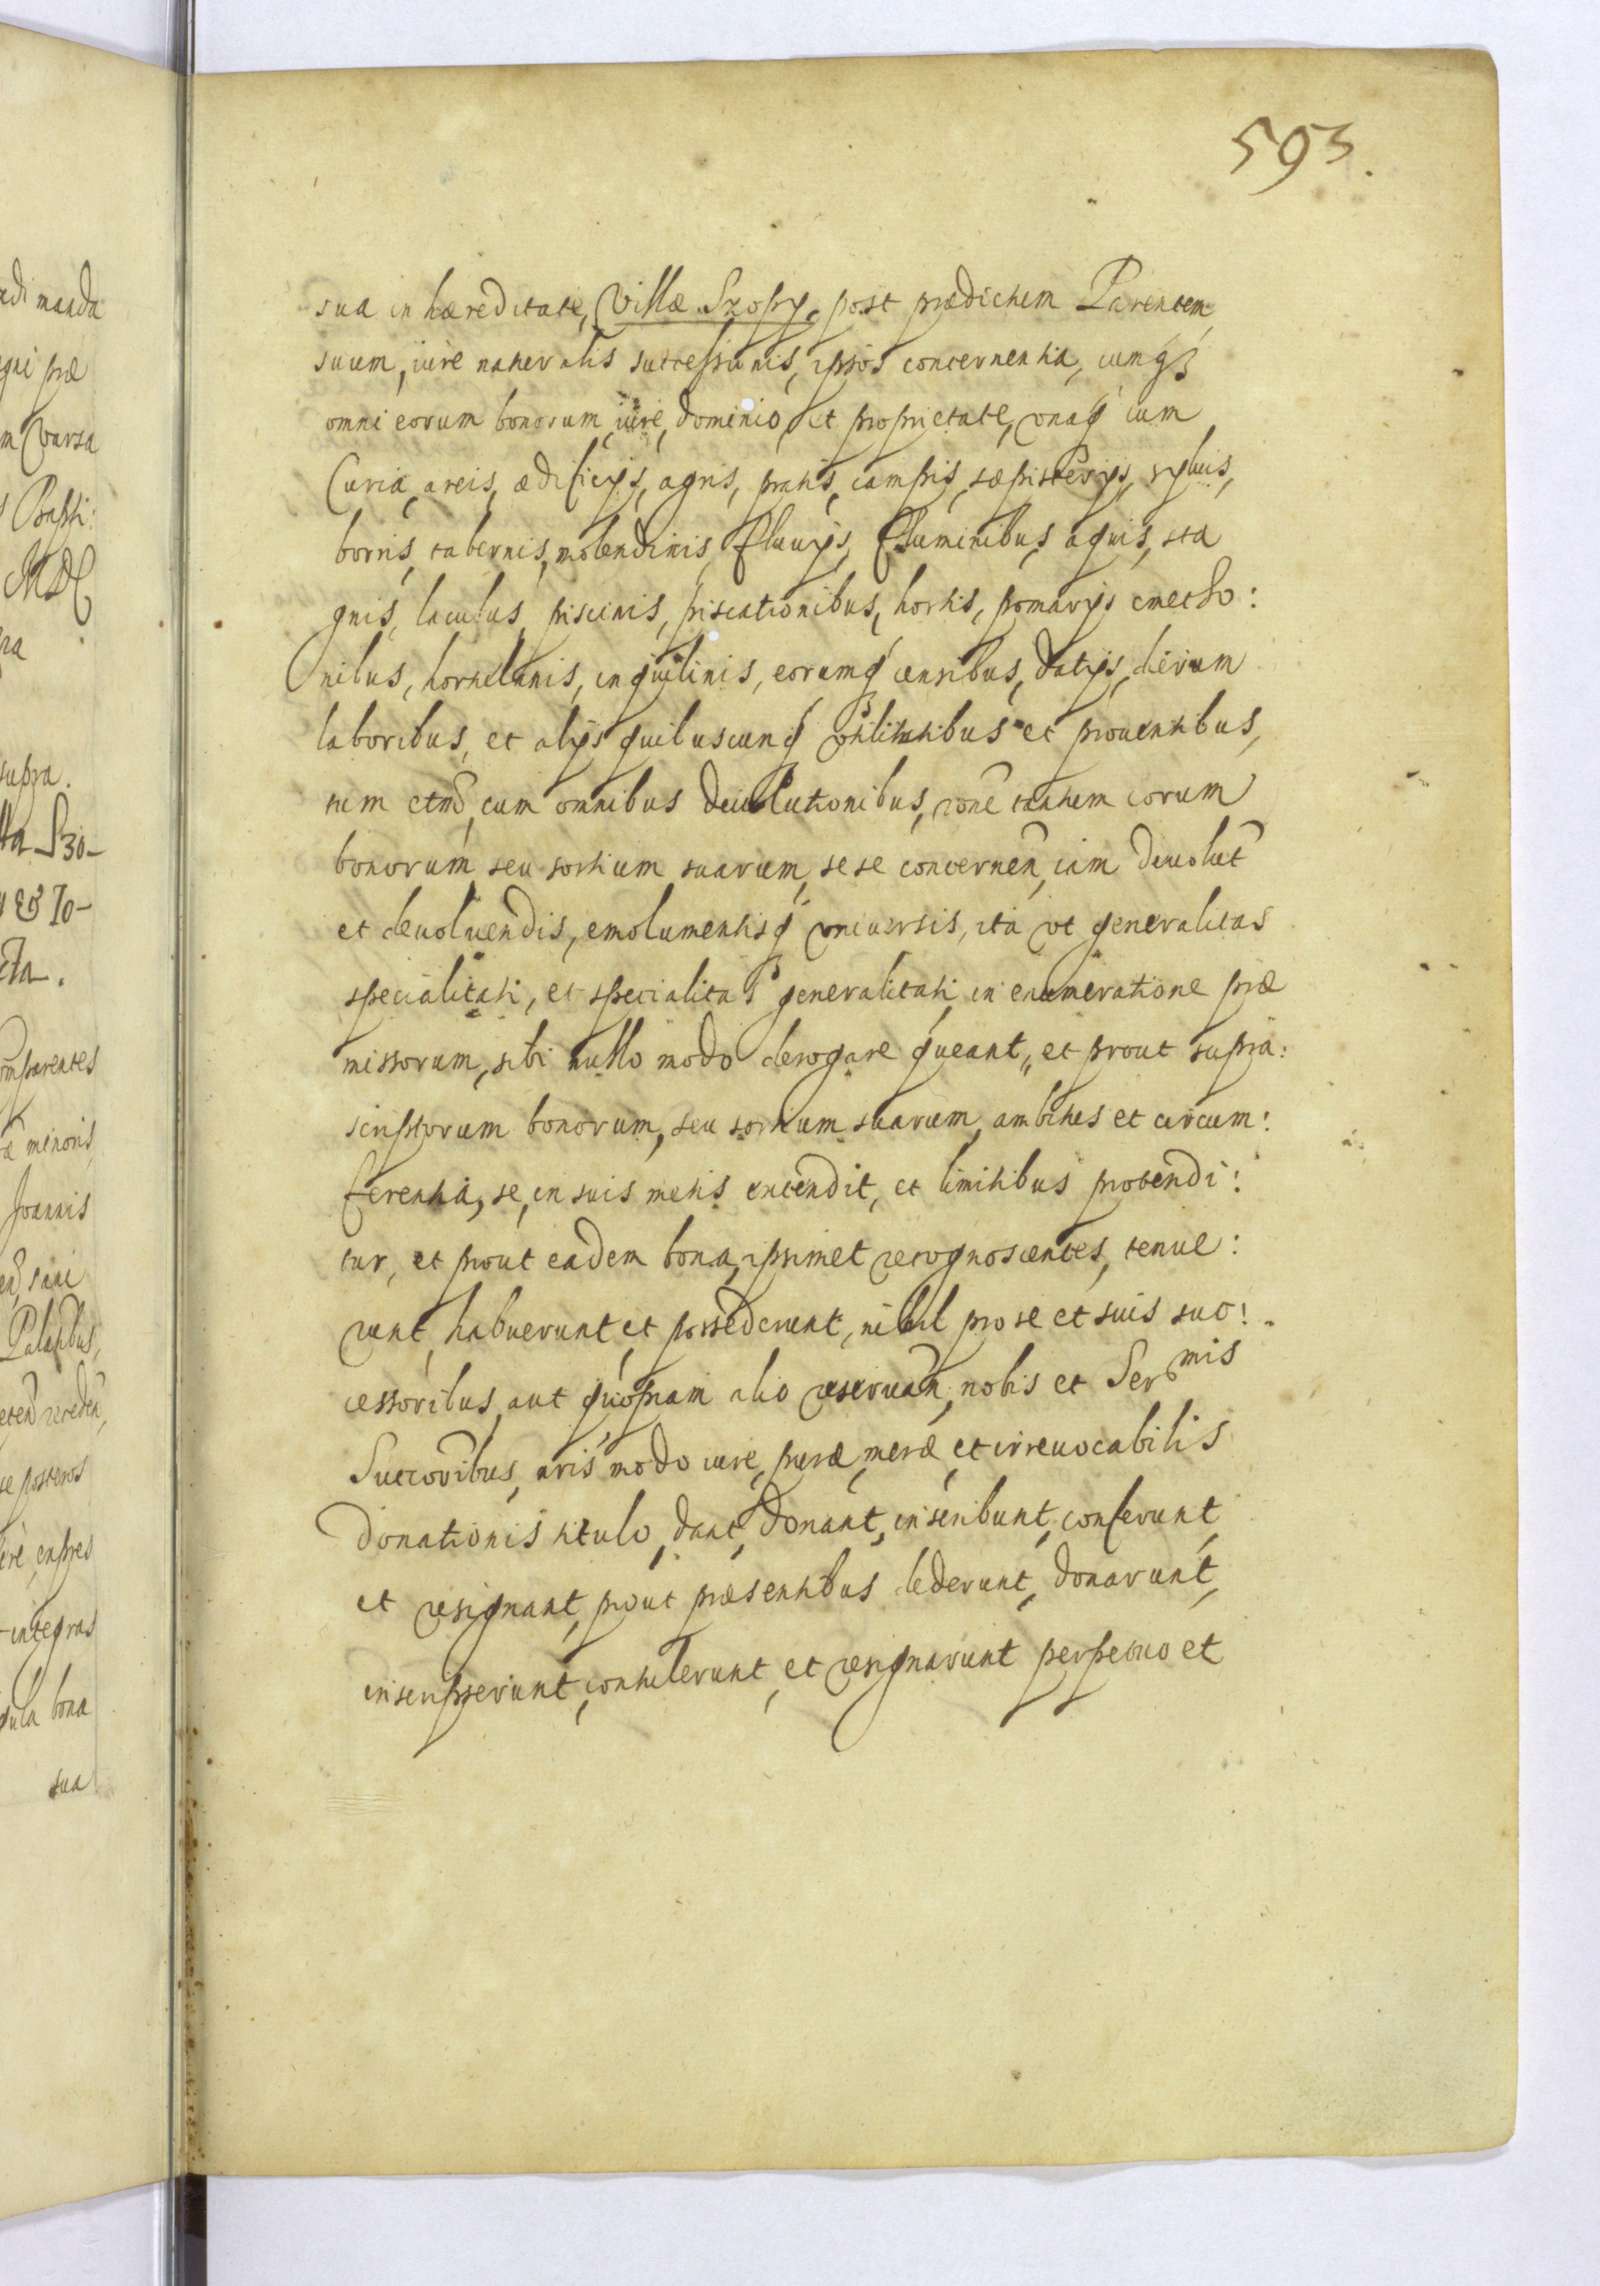 593.
sua in hæreditate, Villæ Szopy, post prædictum Parentem
suum, iure naturalis successionis, ipsos concernentia, cumq3
omni eorum bonorum iure, dominio, et proprietate, vnaq cum
Curia, areis, ædificijs, agris, pratis, campis, sæpisterijs, syluis,
borris, tabernis, molendinis, fluuijs, fluminibus, aquis, sta
gnis, lacubus, piscinis, piscationibus, hortis, pomarijs cmetho:
nibus, hortulanis, inquilinis, eorumq censibus, datijs, dierum
laboribus, et alijs quibuscunq vtilitatibus et prouentibus,
tum etmõ, cum omnibus deuolutionibus, rõne tantum eorum
bonorum, seu sortium suarum, sese concernen, iam deuolut
et deuoluendis, emolumentisq vniuersis, ita vt generalitas
specialitati, et specialitas generalitati in enumeratione præ
missorum, sibi nullo modo derogare queant, et prout supra:
scriptorum bonorum, seu sortium suarum, ambitus et circum:
ferentia, se, in suis metis extendit, et limitibus protendi:
tur, et prout eadem bona, ipsimet recognoscentes, tenue:
runt, habuerunt et possederunt, nihil pro se et suis suc:
cessoribus, aut quopiam alio reseruan, nobis et Sermis
Succoribus, nris modo iure, puræ, meræ, et irreuocabilis
donationis titulo, dant, donant, inscribunt, conferunt,
et resignant, prout præsentibus dederunt, donarunt,
inscripserunt, contulerunt, et resignarunt perpetuo et